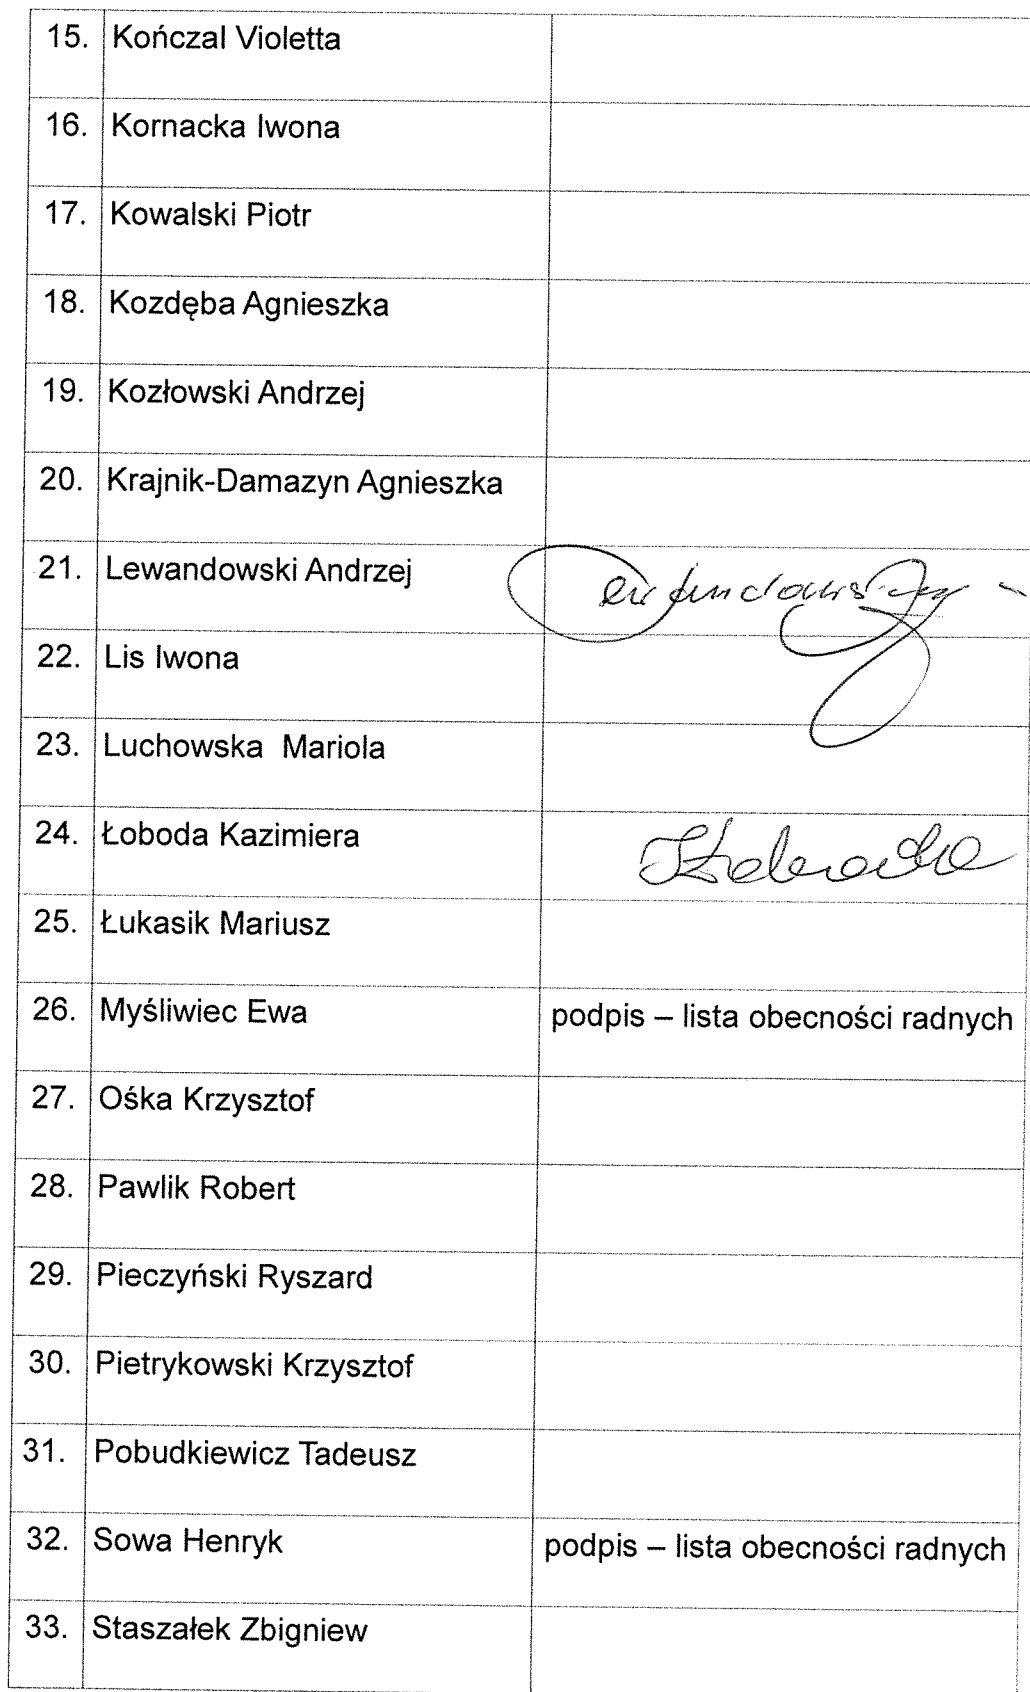 15. Kończal Violetta
16. Kornacka Iwona
17. Kowalski Piotr
18. Kozdęba Agnieszka
19. Kozłowski Andrzej
20. Krajnik-Damazyn Agnieszka
21. Lewandowski Andrzej
22. Lis Iwona
23. Luchowska Mariola
24. Łoboda Kazimiera
25. Łukasik Mariusz
26. Myśliwiec Ewa podpis – lista obecności radnych
27. Ośka Krzysztof
28. Pawlik Robert
29. Pieczyński Ryszard
30. Pietrykowski Krzysztof
31. Pobudkiewicz Tadeusz
32. Sowa Henryk podpis – lista obecności radnych
33. Staszałek Zbigniew